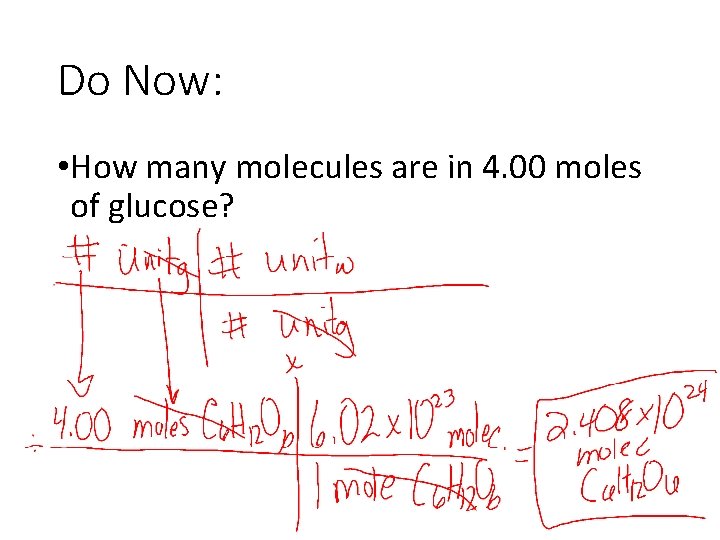 Do Now:
•How many molecules are in 4.00 moles
of glucose?
# unitg | # unitw
# unitg
x
÷ 4.00 moles C6H12O6 | 6.02x10^23 molec. = 2.408x10^24
molec
C6H12O6
1 mole C6H12O6